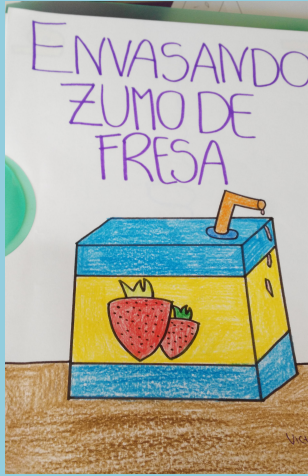 ENVASANDO
ZUMO DE
FRESA